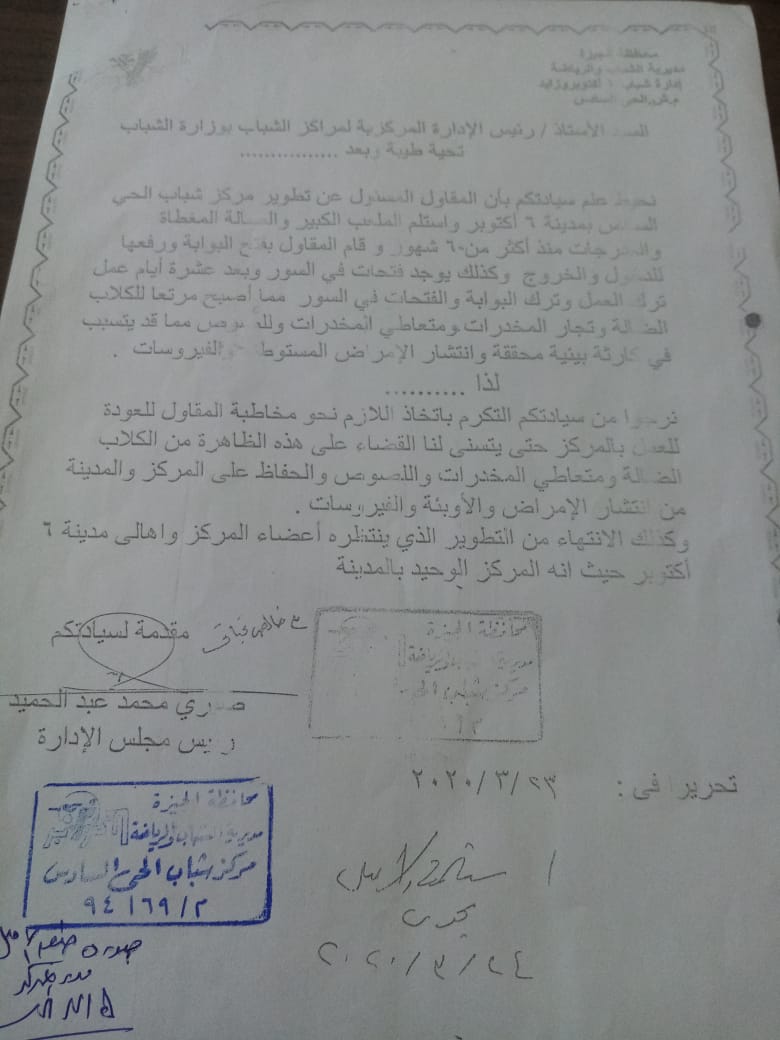 محافظة الجيزة
مديرية الشباب والرياضة
إدارة شباب ٦ أكتوبر وزايد
م.ش الحي السادس
السيد الأستاذ / رئيس الإدارة المركزية لمراكز الشباب بوزارة الشباب
تحية طيبة وبعد ................
نحيط علم سيادتكم بأن المقاول المسئول عن تطوير مركز شباب الحي
السادس بمدينة ٦ أكتوبر واستلم الملعب الكبير والصالة المغطاة
والمدرجات منذ أكثر من ٦٠ شهور و قام المقاول بفتح البوابة ورفعها
للدخول والخروج وكذلك يوجد فتحات في السور وبعد عشرة أيام عمل
ترك العمل وترك البوابة والفتحات في السور مما أصبح مرتعا للكلاب
الضالة وتجار المخدرات ومتعاطي المخدرات وللصوص مما قد يتسبب
في كارثة بيئية محققة وانتشار الإمراض المستوطنة والفيروسات .
لذا ..........
نرجوا من سيادتكم التكرم باتخاذ اللازم نحو مخاطبة المقاول للعودة
للعمل بالمركز حتى يتسنى لنا القضاء على هذه الظاهرة من الكلاب
الضالة ومتعاطي المخدرات واللصوص والحفاظ على المركز والمدينة
من انتشار الإمراض والأوبئة والفيروسات .
وكذلك الانتهاء من التطوير الذي ينتظره أعضاء المركز واهالى مدينة ٦
أكتوبر حيث انه المركز الوحيد بالمدينة
مقدمة لسيادتكم
محمد عبد الحميد
رئيس مجلس الإدارة
محافظة الجيزة
مديرية الشباب والرياضة
مركز شباب الحى
تحريرا فى : ٢٠٢٠/٣/٢٣
محافظة الجيزة
مديرية الشباب والرياضة
مركز شباب الحى السادس
٩٤/٦٩/٢
استلمت الاصل
٢٠٢٠/٣/٢٤
صورة